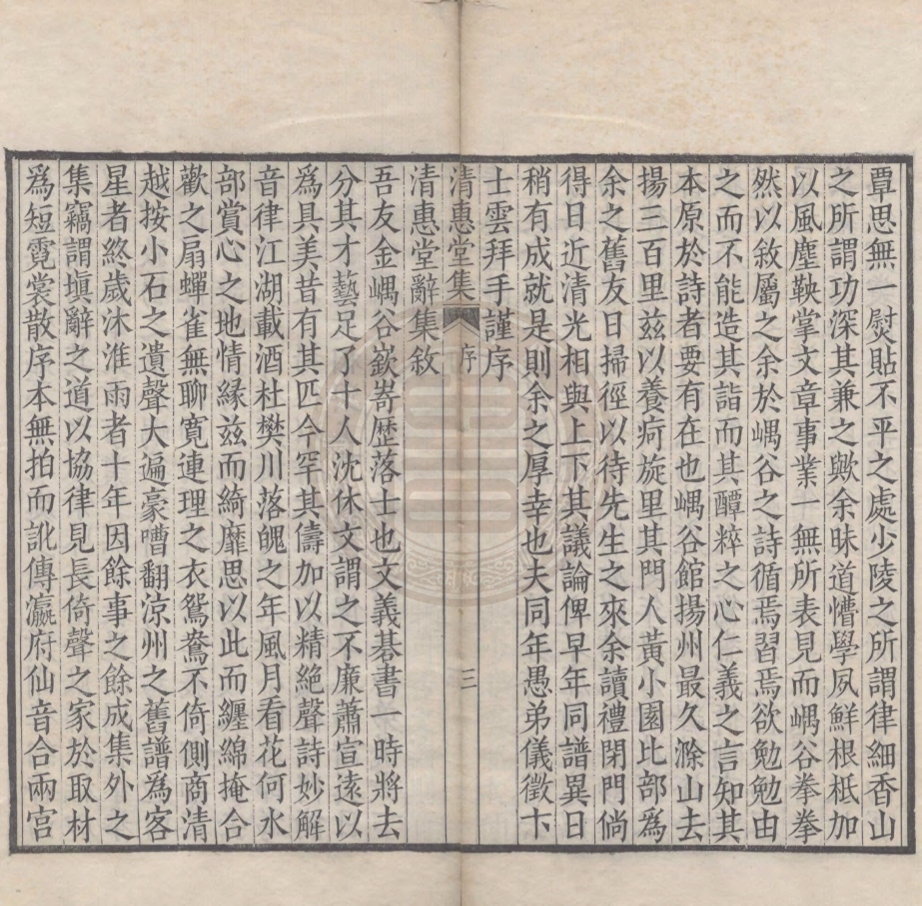 覃思無一熨貼不平之處少陵之所謂律細香山
之所謂功深其兼之歟余昧道懵學夙鮮根柢加
以風塵鞅掌文章事業一無所表見而嵎谷拳拳
然以敘屬之余於嵎谷之詩循焉習焉欲勉勉由
之而不能造其詣而其醰粹之心仁義之言知其
本原於詩者要有在也嵎谷館揚州最久滁山去
揚三百里兹以養疴旋里其門人黃小園比部為
余之舊友日掃徑以待先生之來余讀禮閉門倘
得日近清光相與上下其議論俾早年同譜異日
稍有成就是則余之厚幸也夫同年愚弟儀徵卞
士雲拜手謹序
清惠堂集 序 三
清惠堂辭集敘
吾友金嵎谷嶔嵜歴落士也文義碁書一時將去
分其才藝足了十人沈休文謂之不廉蕭宣遠以
為具美昔有其匹今罕其儔加以精絕聲詩妙解
音律江湖載酒杜樊川落魄之年風月看花何水
部賞心之地情緣兹而綺靡思以此而纏綿掩合
歡之扇蟬雀無聊寛連理之衣鴛鴦不倚側商清
越按小石之遺聲大遍豪嘈翻涼州之舊譜為客
星者終歲沐淮雨者十年因餘事之餘成集外之
集竊謂塡辭之道以協律見長倚聲之家於取材
為短霓裳散序本無拍而訛傳瀛府仙音合兩宫